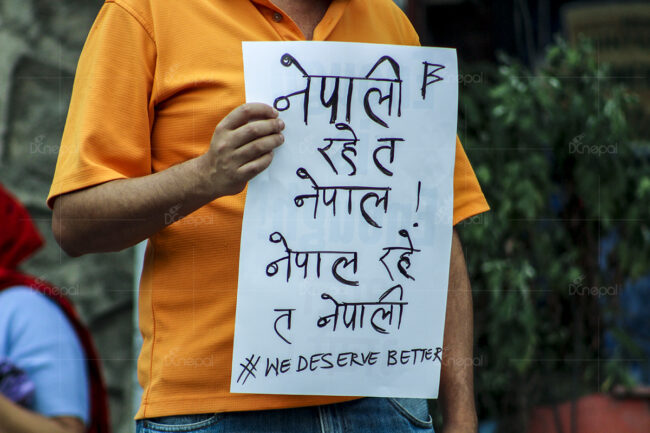 नेपाली
रहे त
नेपाल !
नेपाल रहे
त नेपाली
# WE DESERVE BETTER